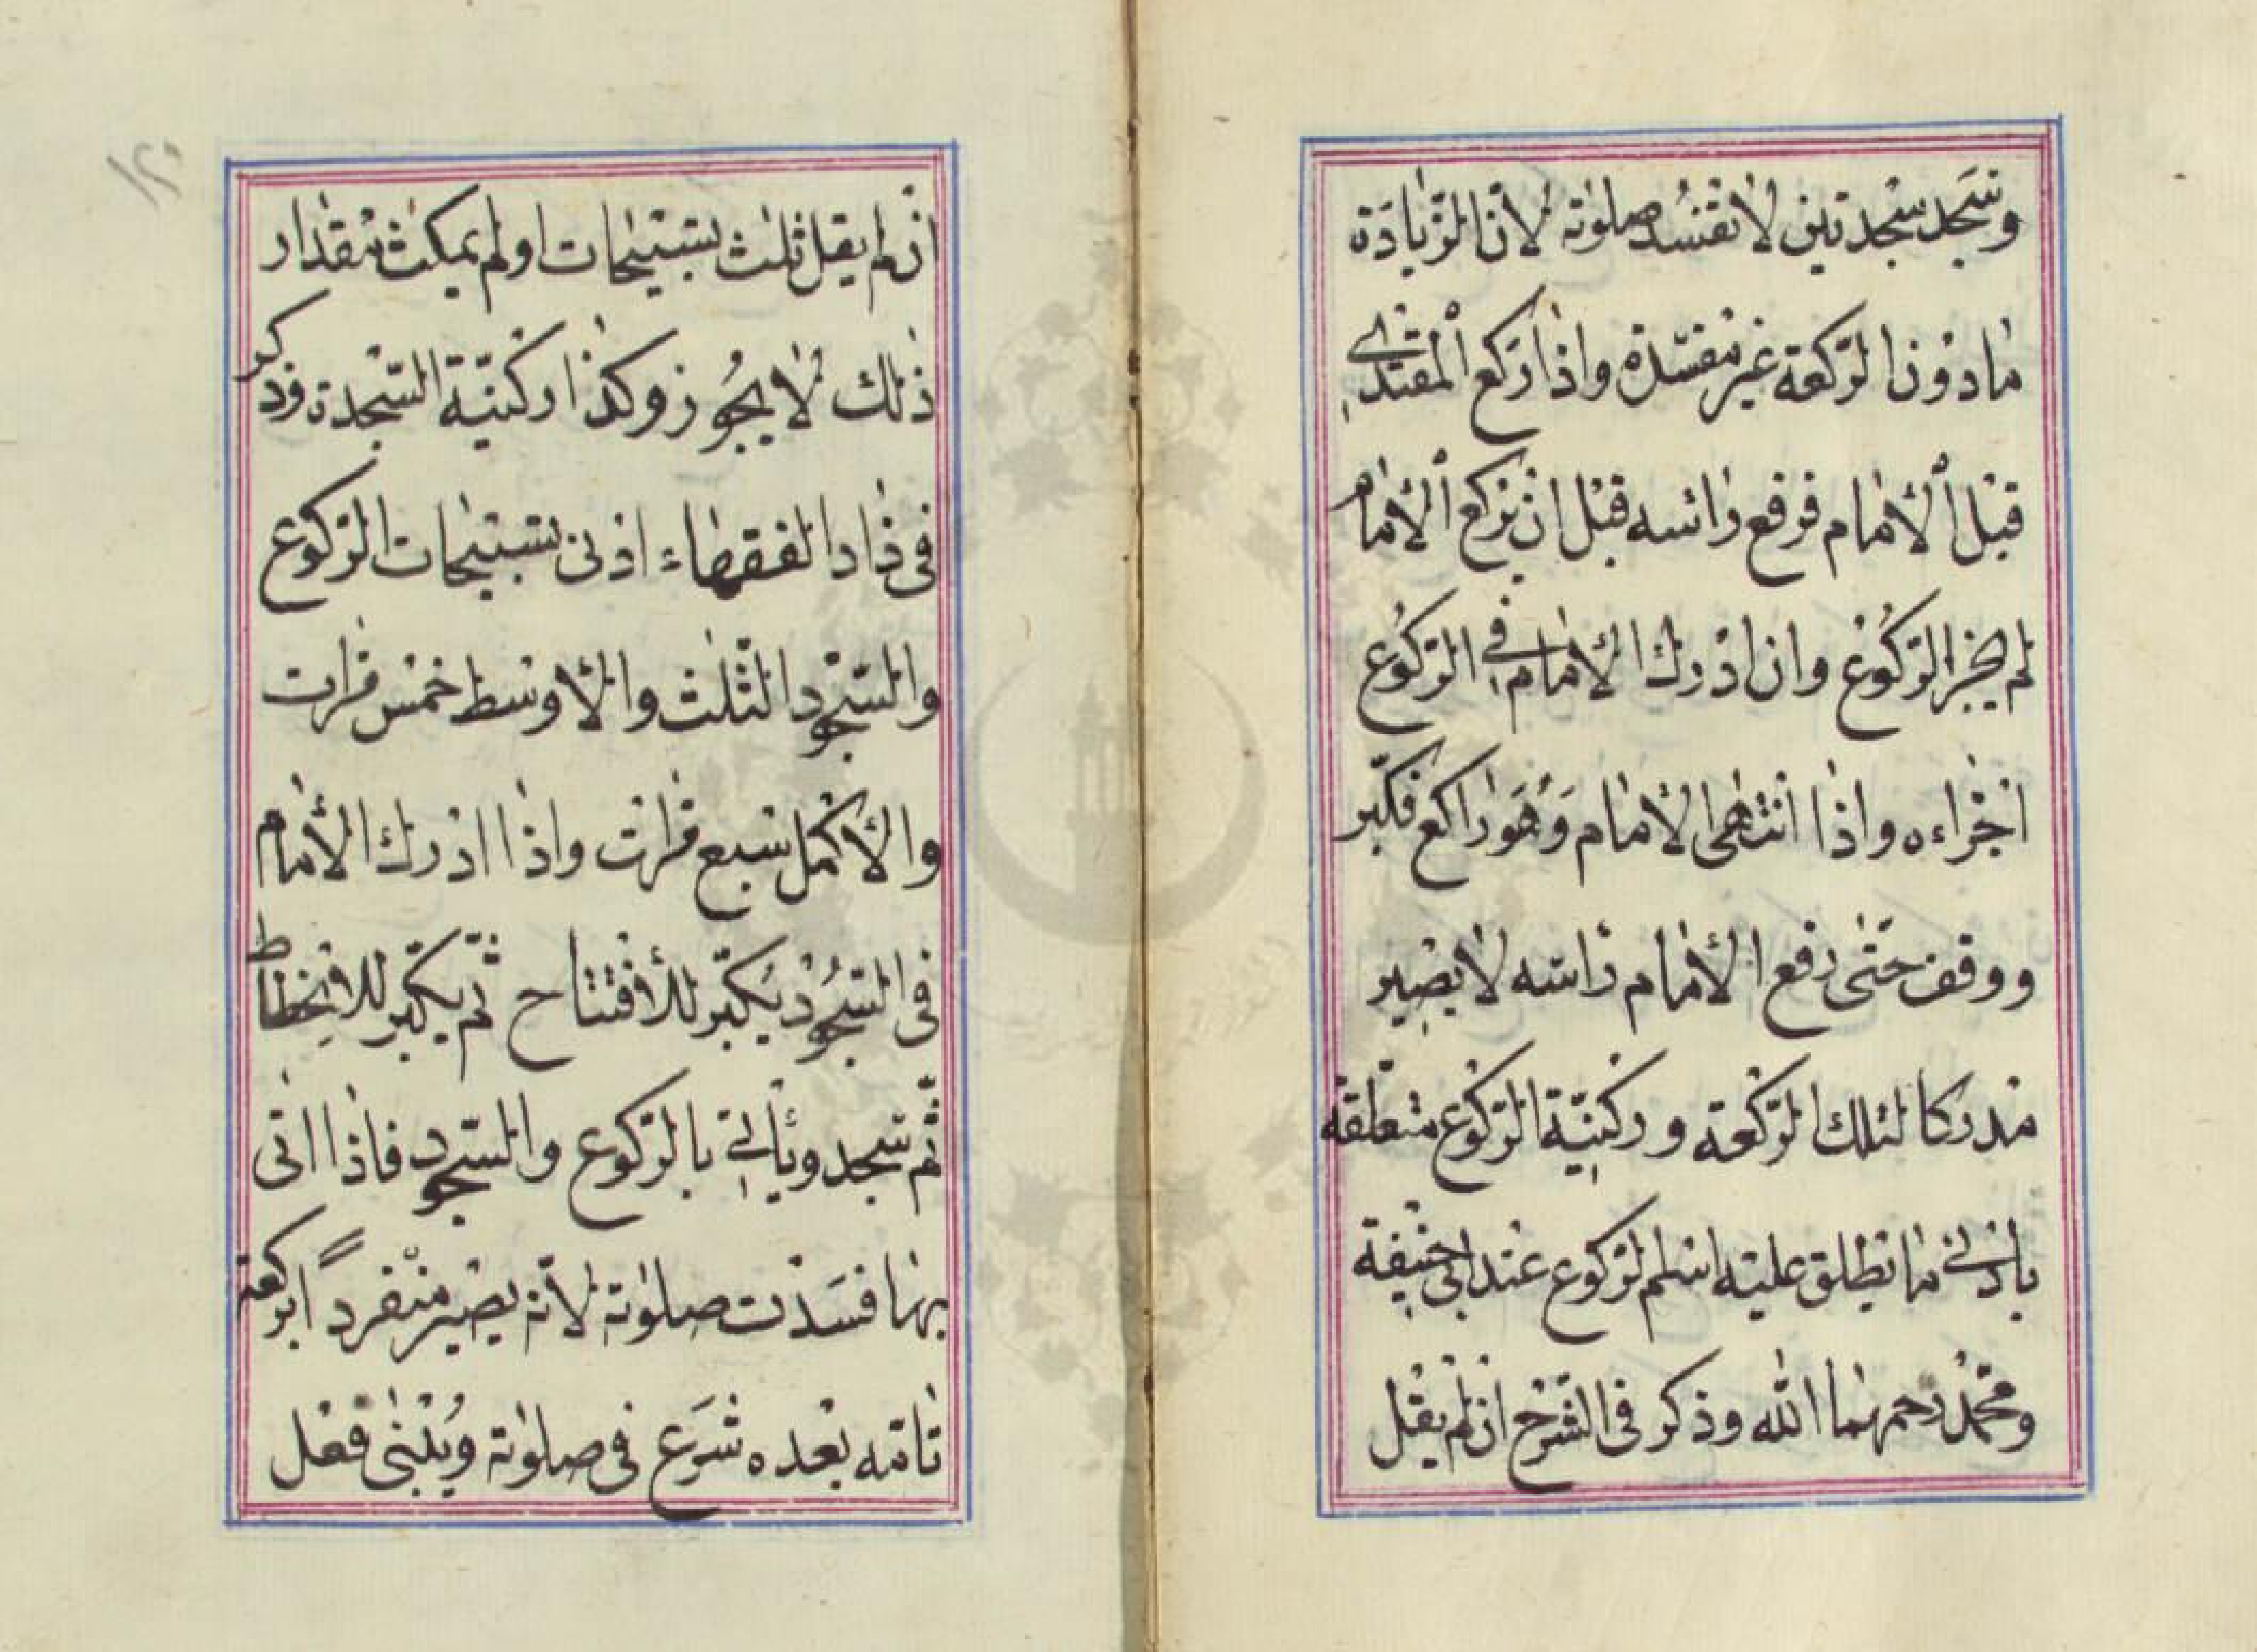 وسجد سجدتين لا تفسد صلوته لان الزيادة
ما دون الركعة غير مفسدة واذا ركع المقتدى
قبل الامام فرفع رائسه قبل ان يركع الامام
لم يجز الركوع وان ادرك الامام فى الركوع
اجزاءه واذا انتهى الامام وهو راكع فكبر
ووقف حتى رفع الامام راسه لا يصير
مدركا لتلك الركعة وركنية الركوع متعلقة
بادنى ما يطلق عليه اسلم لركوع عند ابى حنيفة
ومحمد رحمهما الله وذكر فى الشرح ان لم يقل
ان لم يقل ثلث تسبيحات او لم يمكث مقدار
ذلك لا يجوز وكذا ركنية السجدة وذكر
فى ذاد الفقهاء ادنى تسبيحات الركوع
والسجود الثلث والاوسط خمس مرات
والاكمل سبع مرات واذا ادرك الامام
فى السجود يكبر للافتتاح ثم يكبر للانحطاط
ثم سجد ويأتى بالركوع والسجود فاذا اتى
بهما فسدت صلوته لانه يصير منفردا بركعة
تامة بعده شرع فى صلوته ويبنى فعل
١٢٠